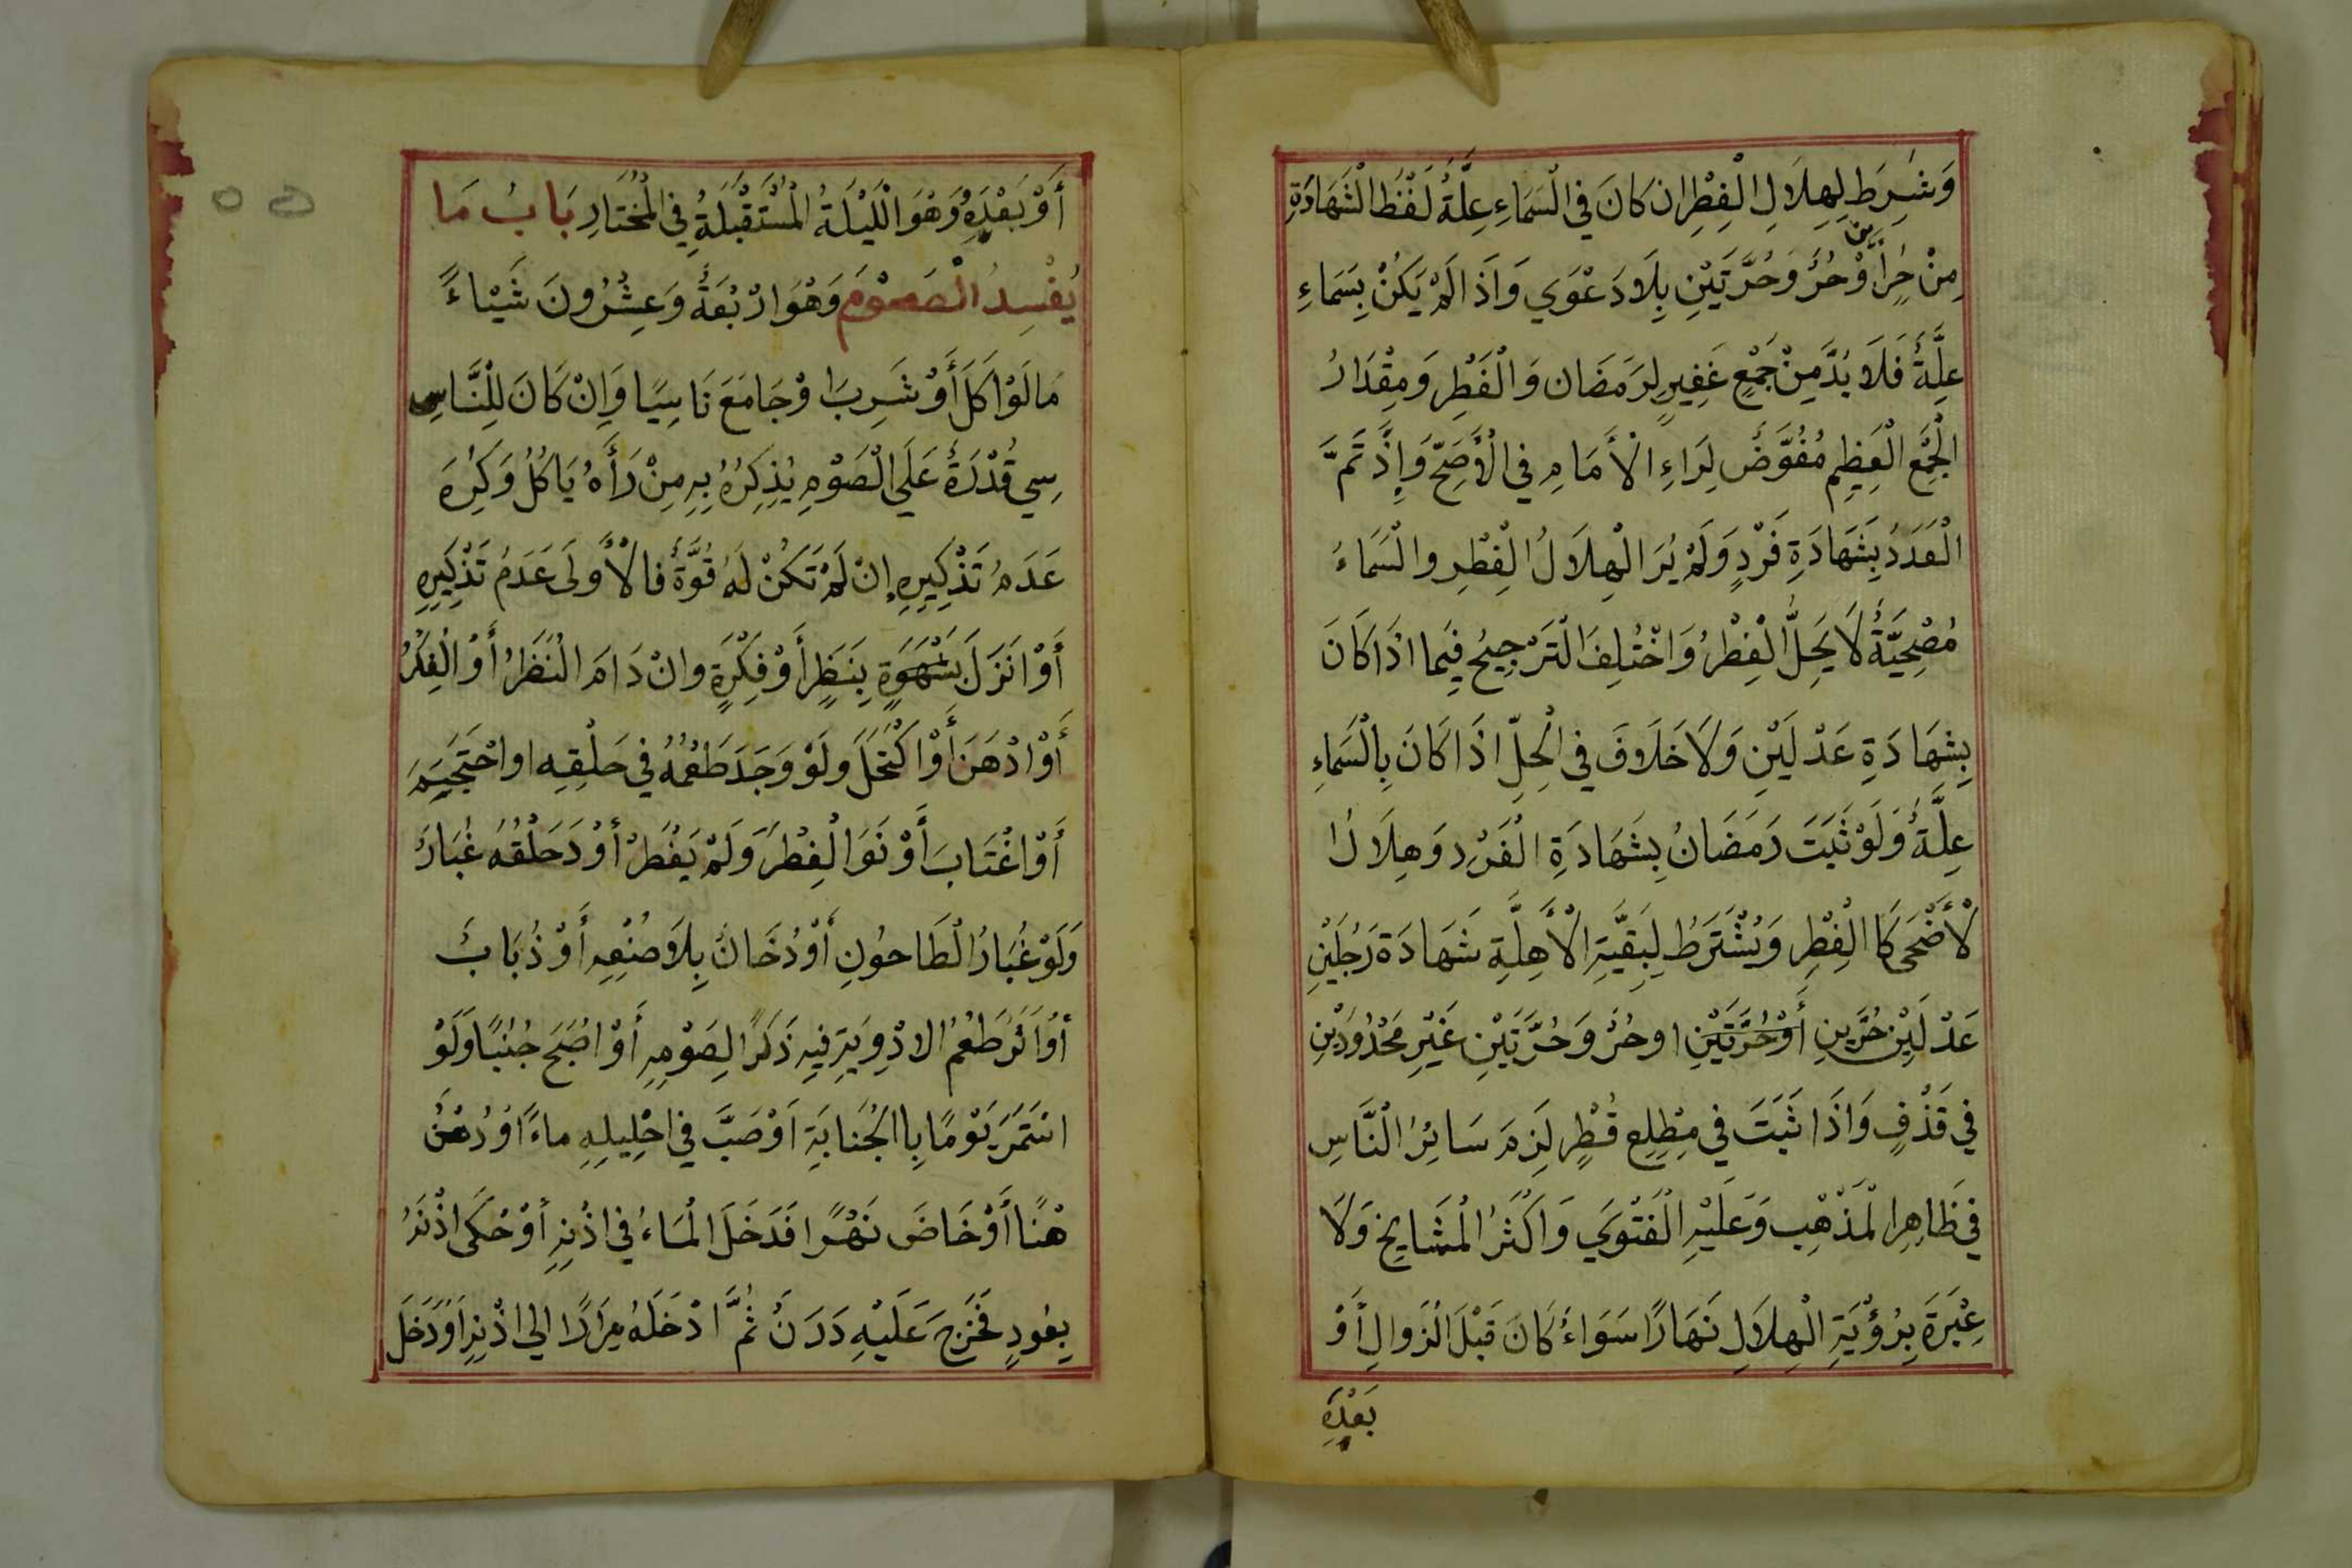 وَشُرِطَ لِهِلَالِ الْفِطْرِ ان كَانَ فِي الْسَمَاءِ عِلَّةُ لَفْظُ الْشَهَادَةِ
مِنْ حُرٍّ أَوْ حُرُ وَ حُرَّتَيْنِ بِلَا دَعْوَي وَاَذَ الَمْ يَكُنْ بِسَمَاءِ
ين
عِلَّةُ فَلَا بُدَّ مِنْ جَمْعٍ غَفِيرٍ لِرَمَضَان وَالْفَطْرِ وَمِقْدَارُ
الْجَمْعِ الْعَظِيمِ مُفَوَّضُ لِرَاءِ الْأَمَامِ فِي الْأَصَحِّ وَإِذَ تَمَّ
الْعَدَدُ بِشَهَادَةِ فَرْدٍ وَلَمْ يُرَ الْهِلَالُ الْفِطْرِ والْسَمَاءُ
مُصْحِيَّةُ لَا يَحِلُّ الْفِطْرُ وَاخْتُلِفَ الْتَرْجِيحُ فِيما اذَا كَانَ
بِشَهَادَةِ عَدْلَيْنِ وَلَا خَلَافَ فِي الْحِلِّ اذَا كَانَ بِالْسَمَاءِ
عِلَّةُ وَلَوْ ثَبَتَ رَمَضَانُ بِشَهَادَةِ الْفَرْدِ وَهِلَالُ ا
لْأَضْحَى كَا الْفِطْرِ وَيُشْتَرَطُ لِبَقِيَّةِ الْأَهِلَّةِ شَهَادَة رَجُلَيْنِ
عَدْلَيْنِ حُرَّينِ أَوْ حُرَّتَيْنِ او حُرُ وَ حُرَّتَيْنِ غَيْرِ مَحْدُودَيْنِ
فِي قَذْفٍ وَاذَا ثَبَتَ فِي مِطْلِعِ قُطْرٍ لَزِمَ سَائِرُ الْنَّاسِ
فِي ظَاهِرِ الْمَذْهِبِ وَعَلَيْهِ الْفَتْوَي وَاكْثَرُ الْمَشَايخِ وَلَا
عِبْرَةَ بِرُؤْيَةِ الْهِلَالِ نَهَارًا سَوَاءُ كَانَ قَبْلَ الْزَوالِ أَوْ
بَعْدِهِ
أَوْ بَعْدِهِ وَهُوَ الْلَيْلَةُ الْمُسْتَقْبَلَةُ فِي الْمُخْتَارِ بَابُ مَا
يُفْسِدُ الْصَوْمَ وَهُوَ ارْبُعَةُ وَعِشْرُونَ شَيْاءً
مَا لَوْ اكَلَ أَوْ شَرِبَ اوْ جَامَعَ نَاسِيًا وَاِنْ كَانَ لِلْنَّاسِ
سِي قُدْرَةُ عَلَي الْصَوْمِ يُذِكِرُهُ بِهِ مِنْ رَأَهُ يَاكُلُ وَكَرِهَ
عَدَمُ تَذْكِيرِهِ إنْ لَمْ تَكُنْ لَهُ قُوَّةُ فالْأَوْلَى عَدَمُ تَذْكِيرِهِ
أَوْ انَزَلَ بِشَهْوَةٍ بِنَظَرٍ أَوْ فِكْرَةٍ وانْ دَامَ الْنَظَرُ أَوْ الْفِكْرُ
أَوْ ادْهَنَ أَوْ اكْتَحَلَ وَلَوْ وَجَدَ طَعْمُهُ فِي حَلْقِهِ او احْتَجَيَمَ
أَوْ اغْتَابَ أَوْ نَوَا الْفِطْرَ وَلَمْ يَفْطَرْ أوْ دَحَلْقُهُ غُبَارُ
وَلَوْ غُبَارُ الْطَاحُونِ أَوْ دُخَانُ بِلَا صُنْعِهِ أَوْ ذُبَابُ
أَوْ اثَرُ طَعْمُ الادْوِيَةِ فِيهِ ذَكَرًا لِصَوْمِهِ أَوْ اصْبَحَ جُنُبًا وَلَوْ
اسْتَمَرَ يَوْمًا بِا الْجُنَابَةِ اَوْ صَبَّ فِي احْلِيلِهِ ماءً اوْ دُهْنُ
هْنًا أَوْ خَاضَ نَهْرًا فَدَخَلَ الْمَاءُ فِي اذُنِهِ أوْ حَكَى اذْنَهُ
بِعُودٍ فَخَرَجَ عَلَيْهِ دَرَنُ ثُمَّ ادْخَلَهُ مِرَارًا الي اذْنِهِ اَوْ دَخَلَ